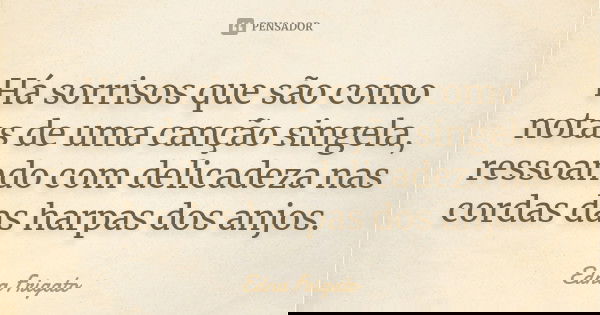 PENSADOR
Há sorrisos que são como
notas de uma canção singela,
ressoando com delicadeza nas
cordas das harpas dos anjos.
Edna Frigato